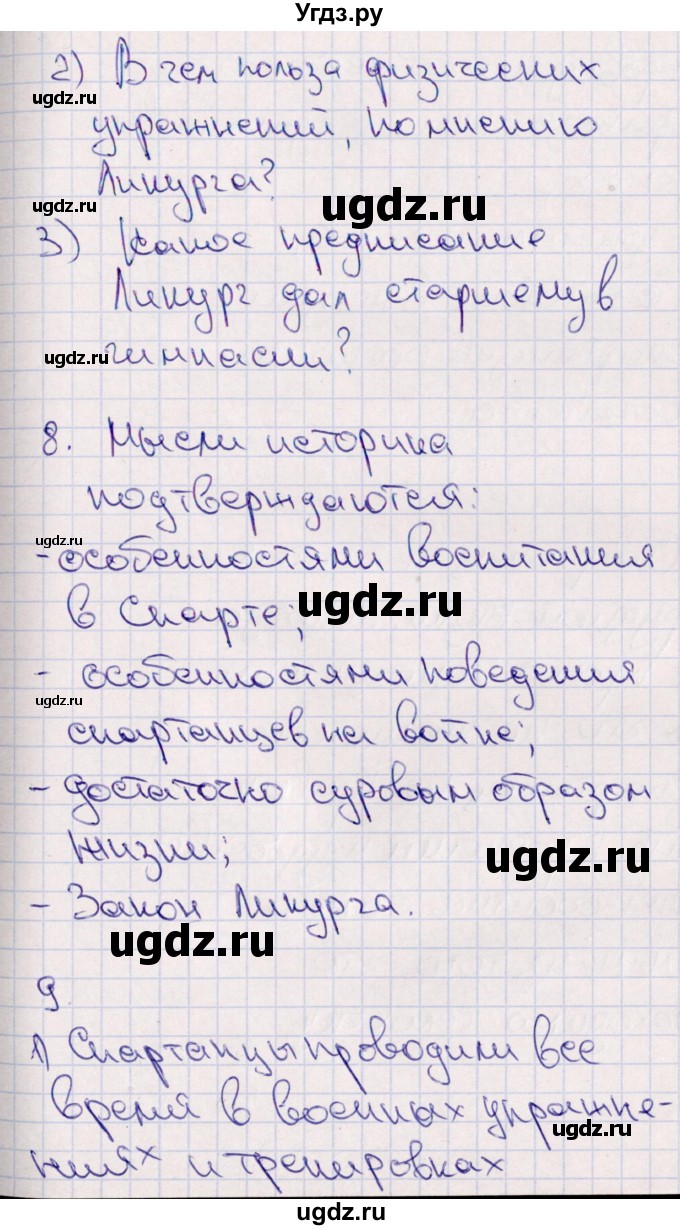 Угдз.ру
2) В чем польза физических
ugdz.ru
упражнений, по мнению
Ликурга?
ugdz.ru
ugdz.ru
3) Какое предписание
Ликург дал старшему в
ugdz.ru
гимнасии?
8. Мысли историка
подтверждаются:
ugdz.ru
- особенностями воспитания
в Спарте;
ugdz.ru
- особенностями поведения
ugdz.ru
спартанцев на войне;
- достаточно суровым образом
жизни;
ugdz.ru
- Закон Ликурга.
ugdz.ru
9.
1) Спартанцы проводили все
время в военных упражне-
ugdz.ru
ниях и тренировках
Угдз.ру